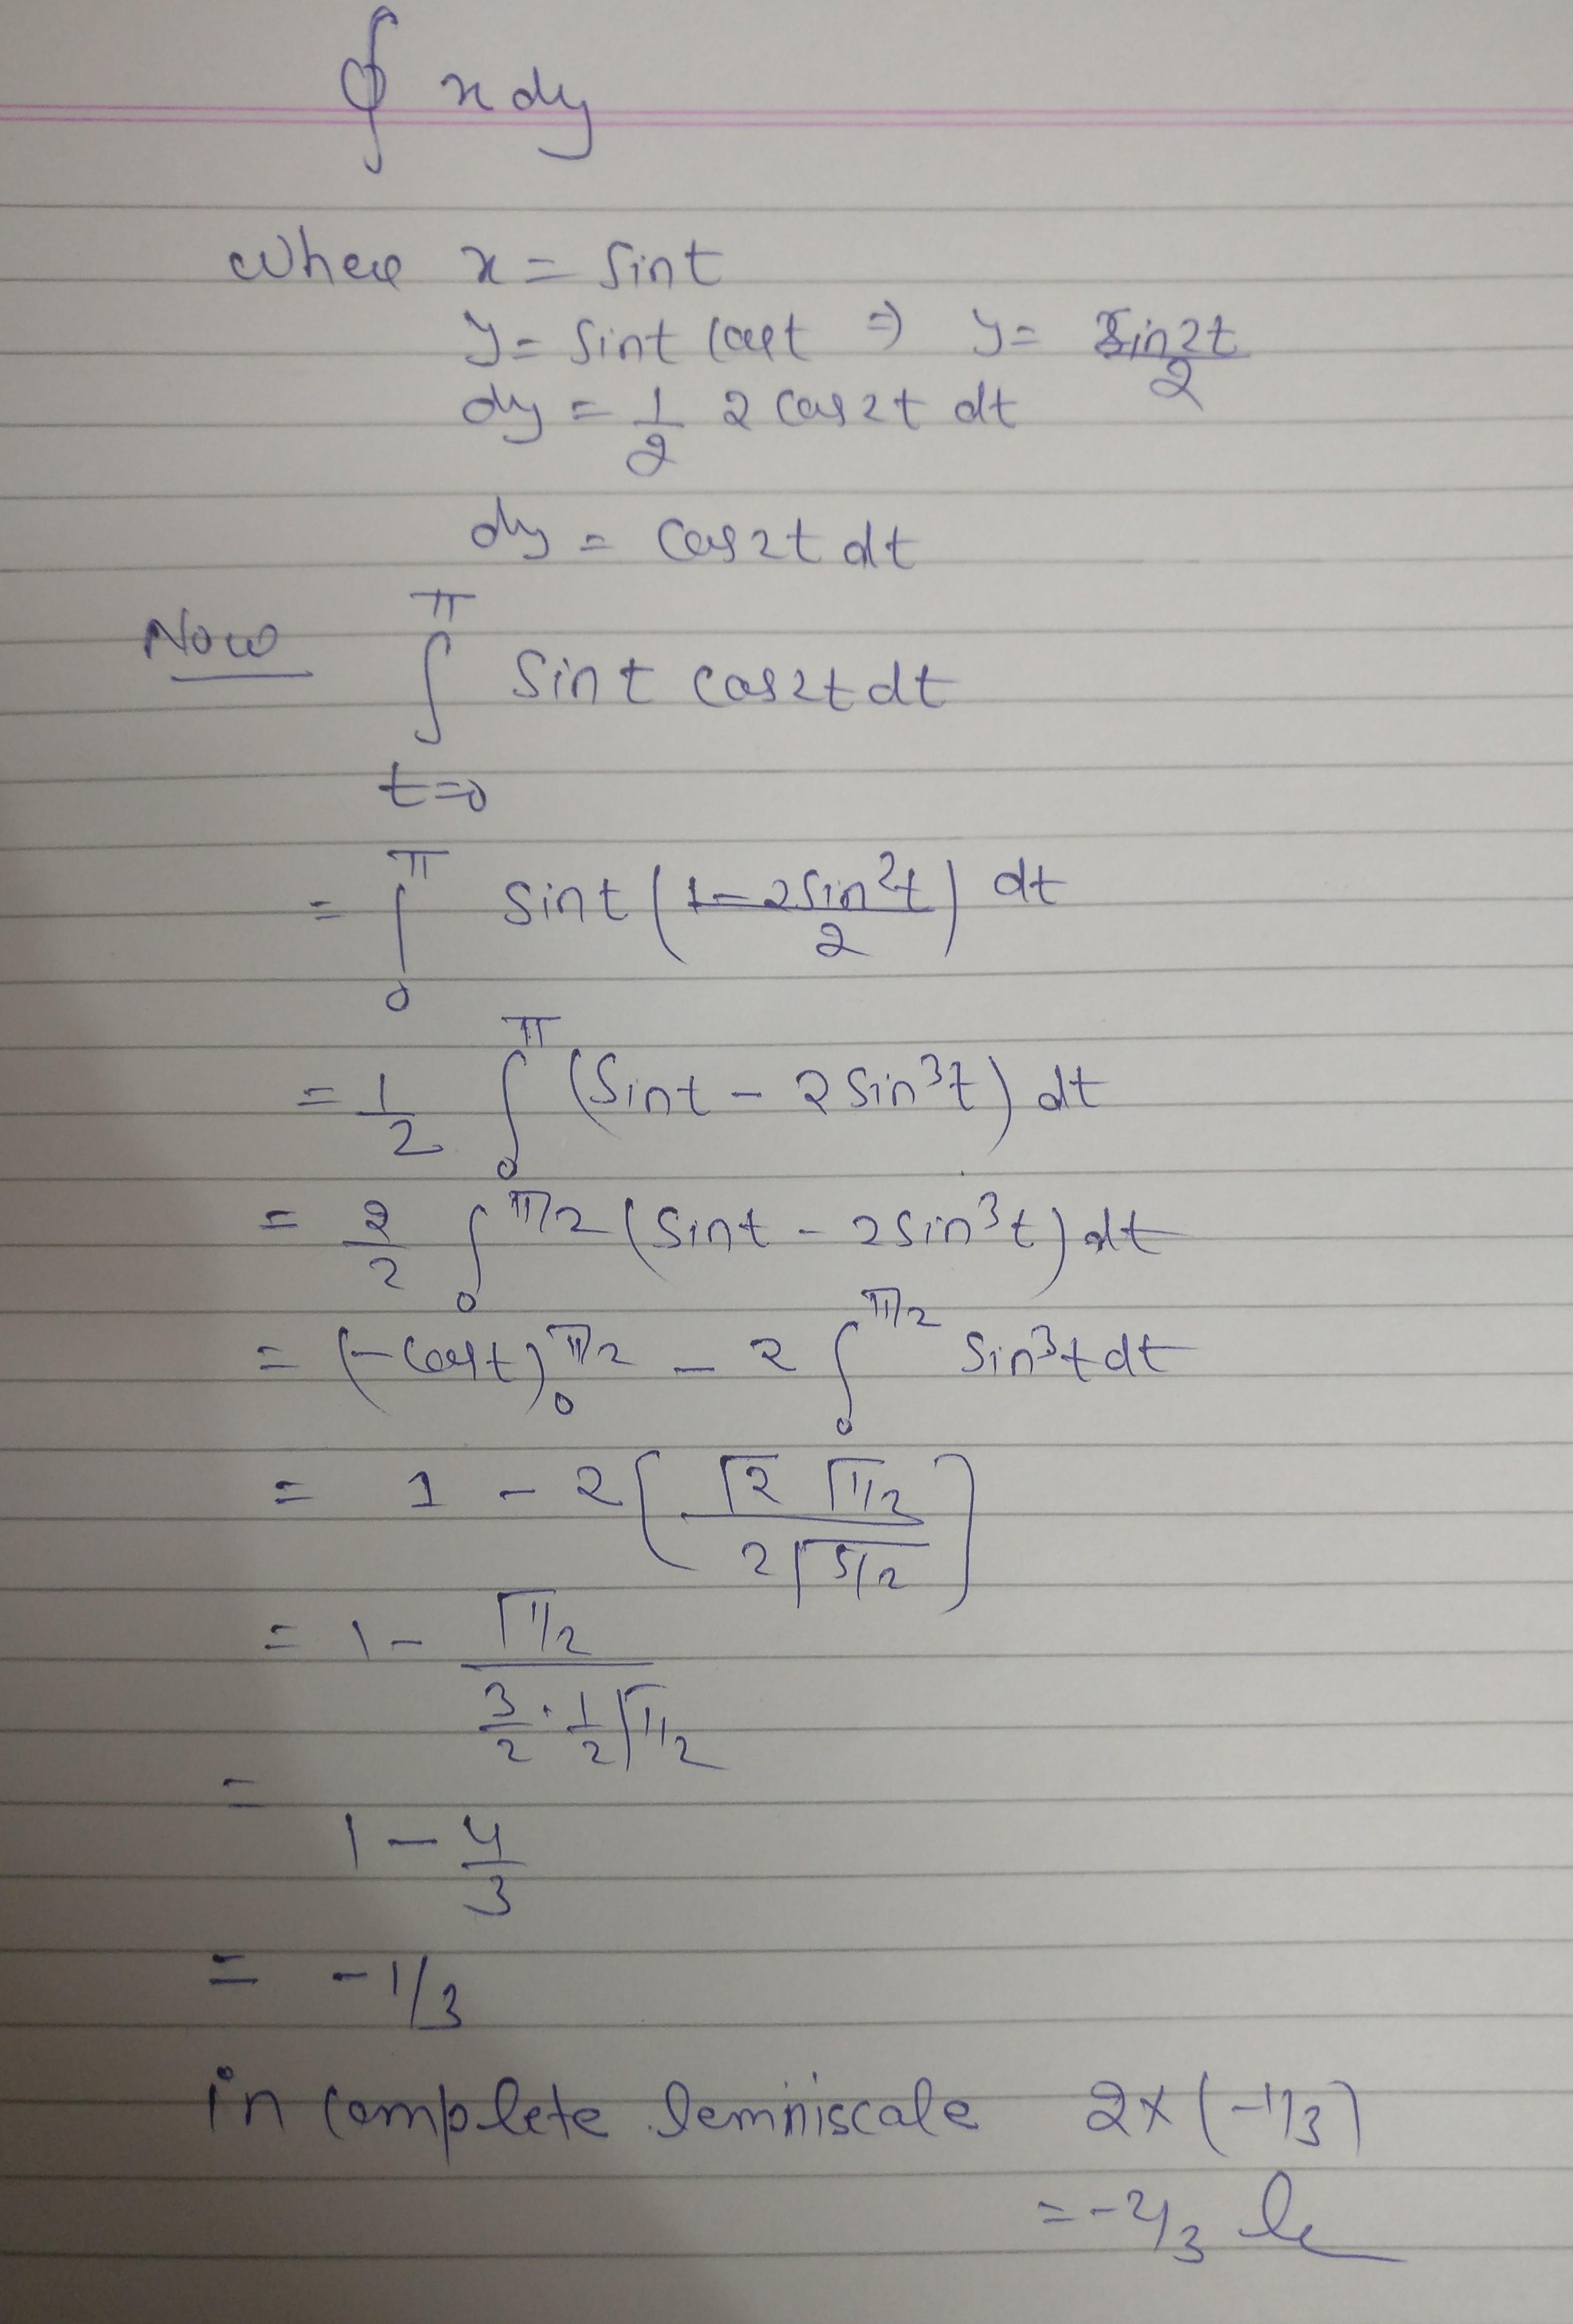 ∮ x dy
where x = sint
y = sint cost ⇒ y = sin2t/2
dy = 1/2 2 cos2t dt
dy = cos2t dt
Now ∫_{t=0}^{π} sint cos2t dt
= ∫_0^π sint (1-2sin²t/2) dt
= 1/2 ∫_0^π (sint - 2sin³t) dt
= 2/2 ∫_0^{π/2} (sint - 2sin³t) dt
= (-cost)_0^{π/2} - 2 ∫_0^{π/2} sin³t dt
= 1 - 2 [Γ2 Γ1/2 / 2Γ5/2]
= 1 - Γ1/2 / (3/2 · 1/2 Γ1/2)
= 1 - 4/3
= -1/3
in complete lemniscale 2×(-1/3)
= -2/3